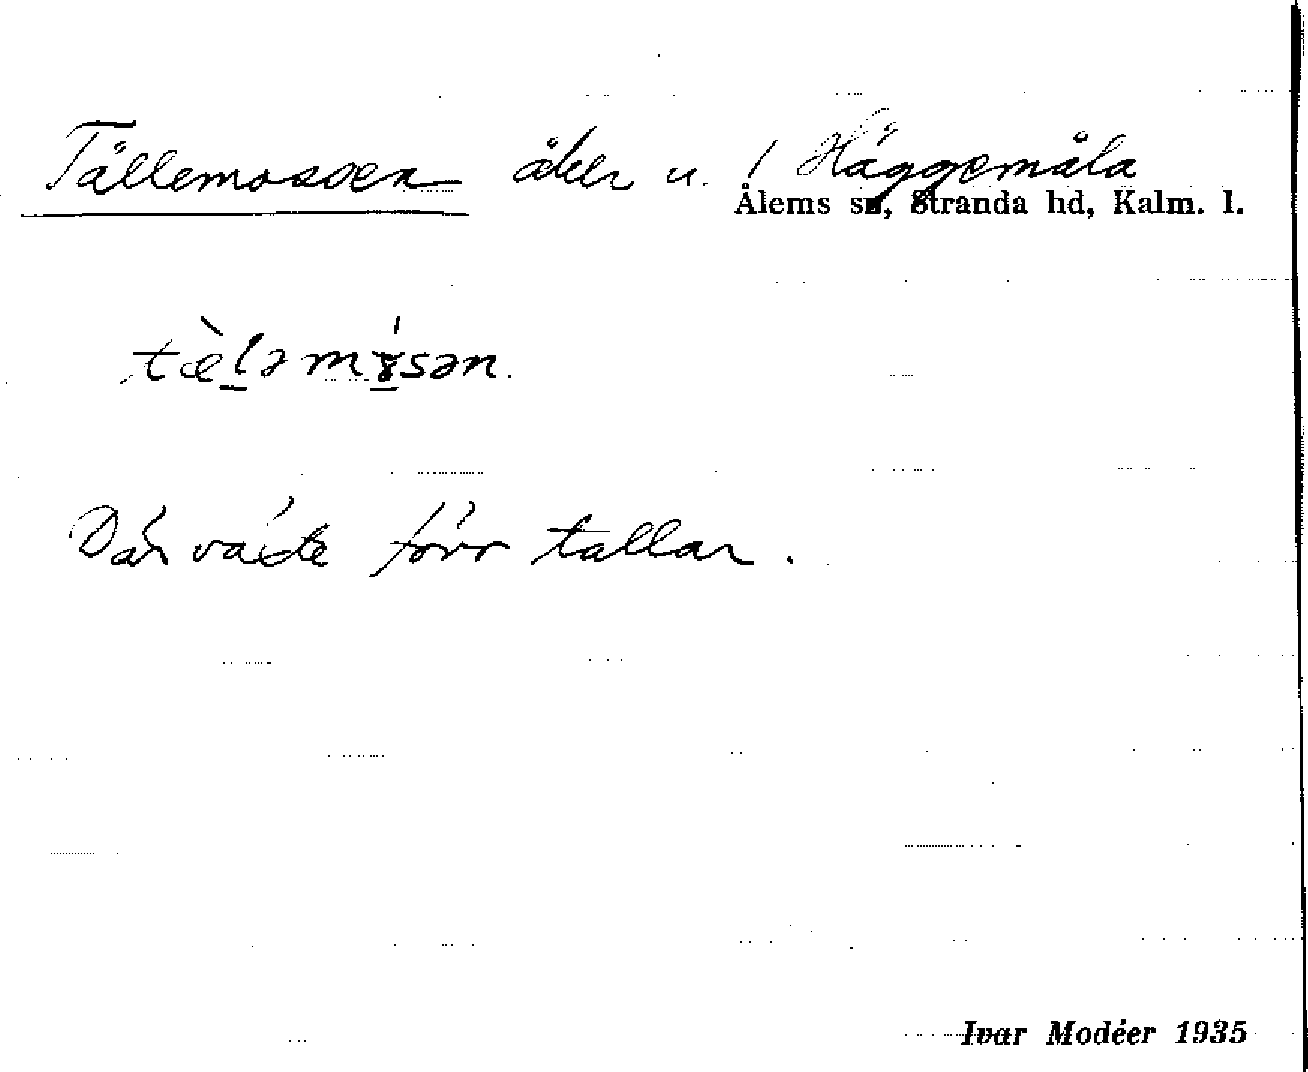 Tällemossen åker u. 1 Häggemåla
Ålems sn, Stranda hd, Kalm. l.
tæ̀lləmɤ́sən.
Där växte förr tallar.
Ivar Modéer 1935